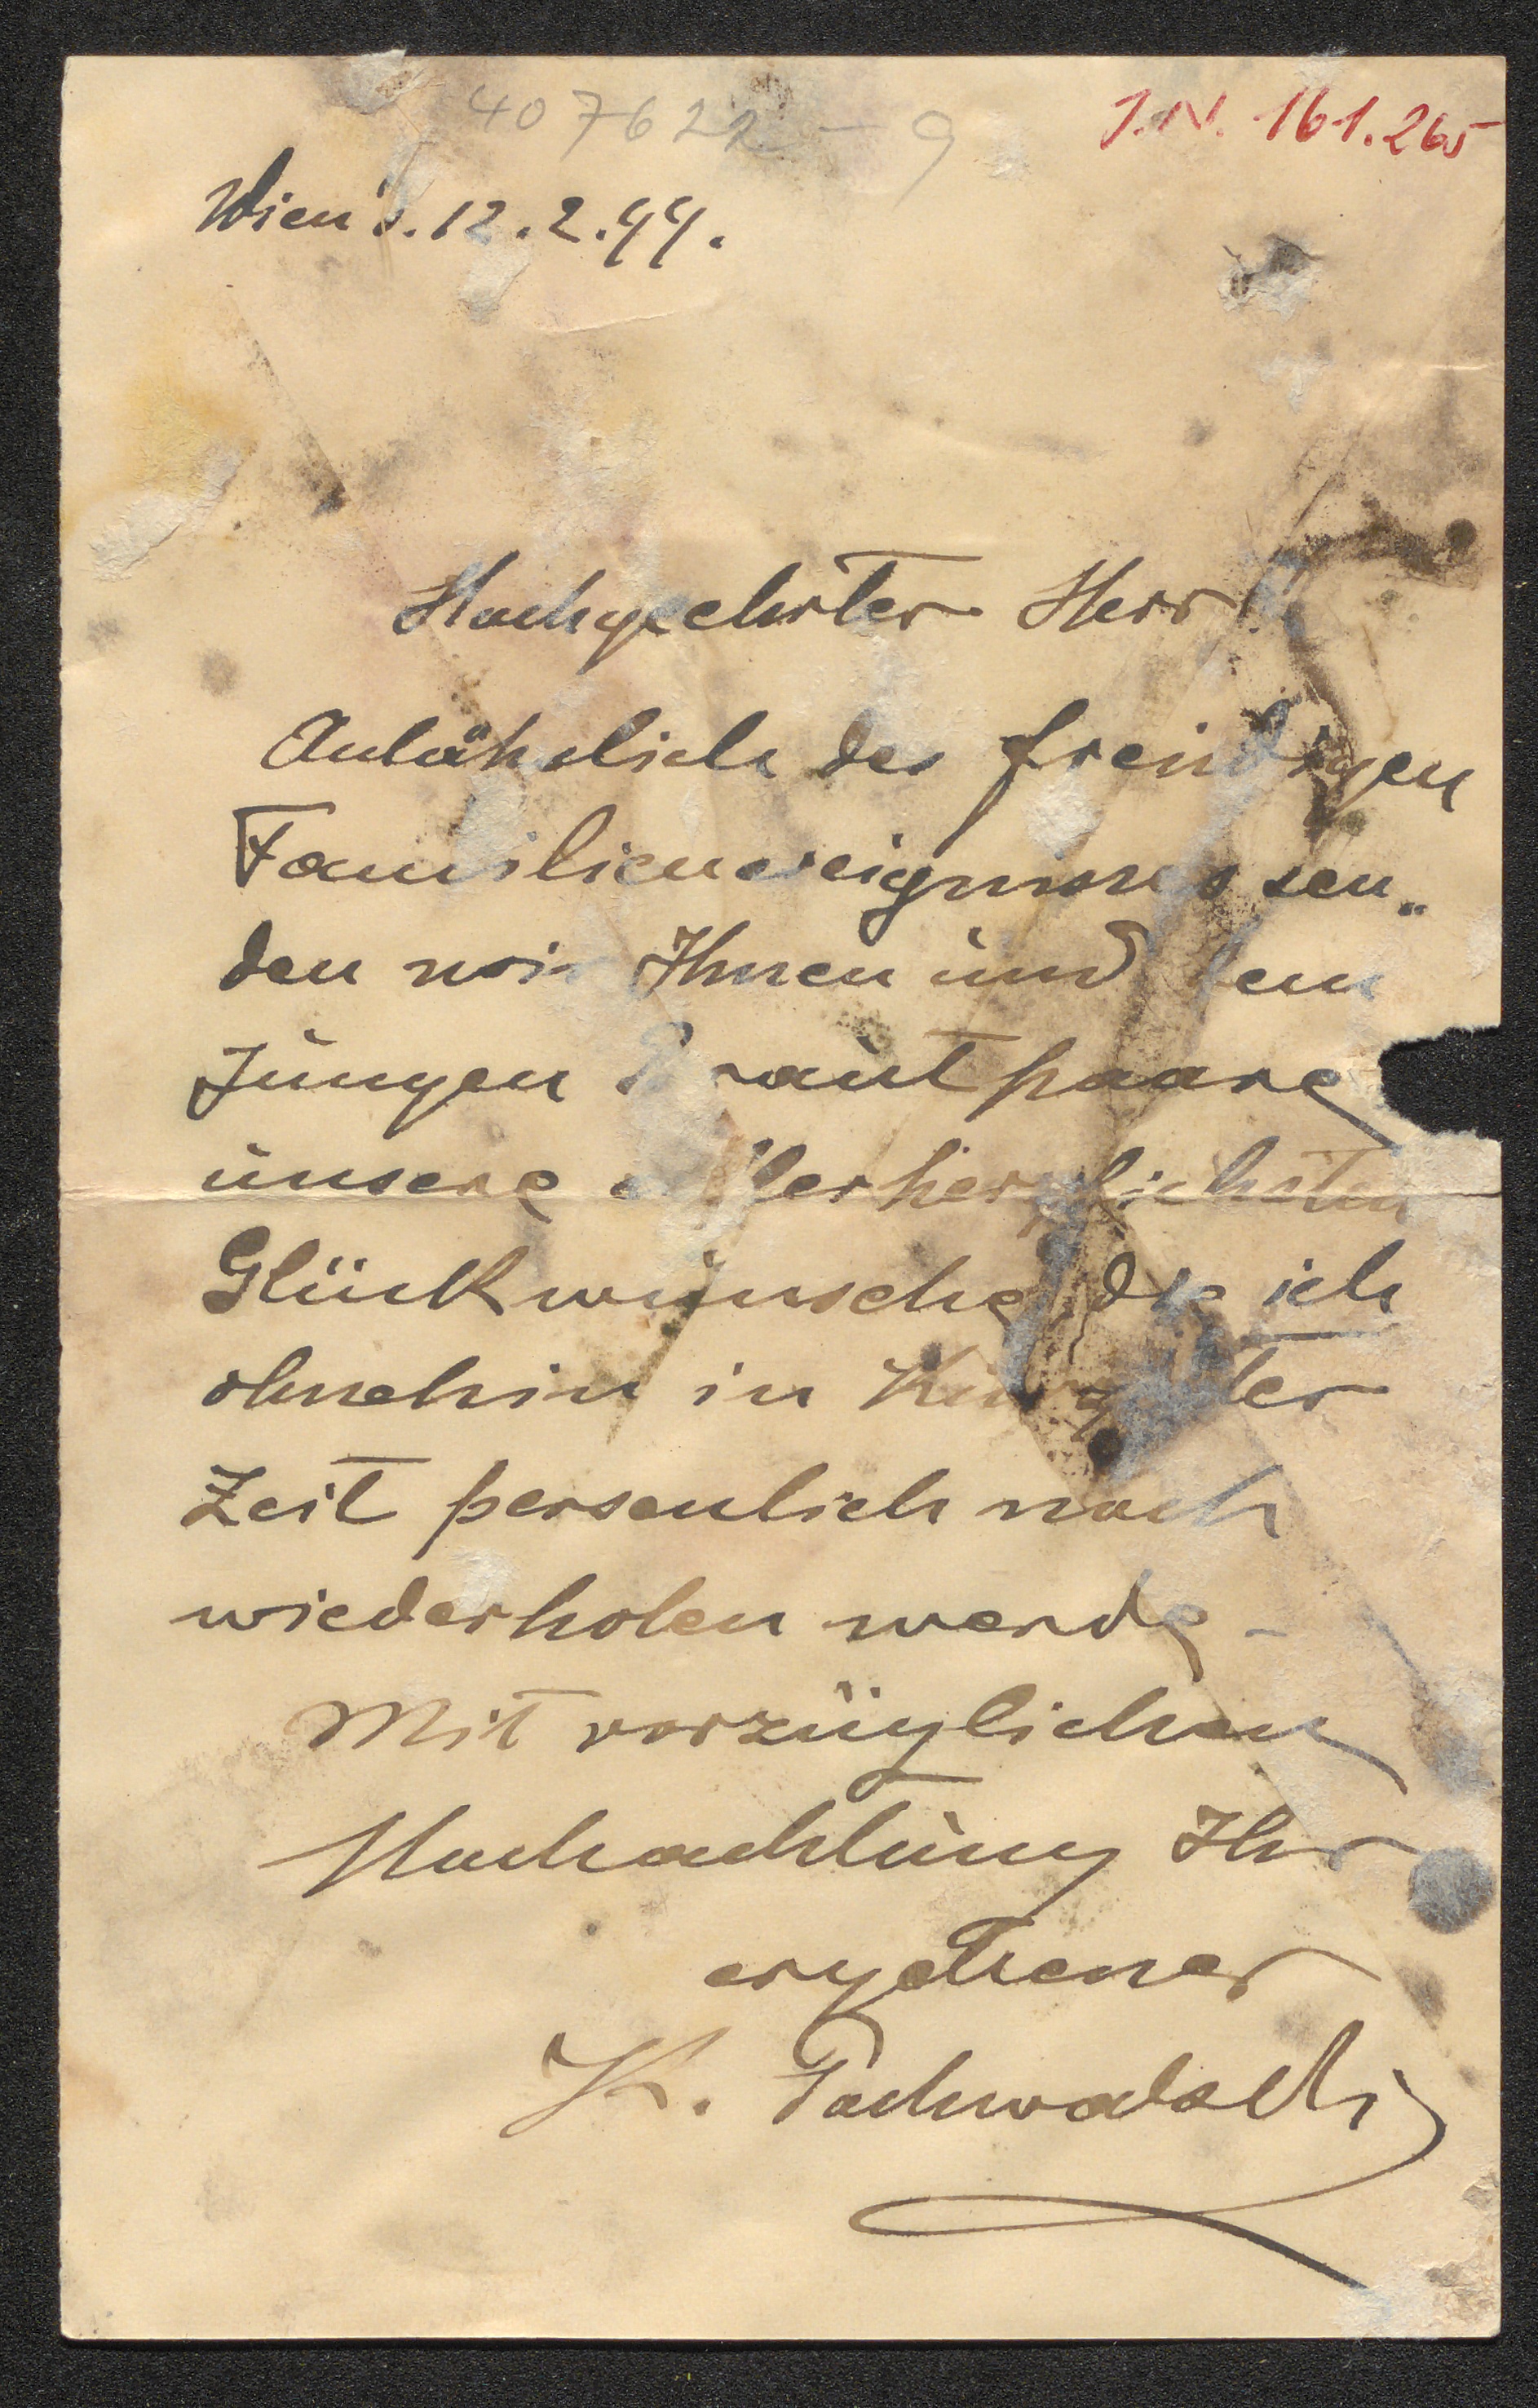 407622 - 9
J.N. 161.265
Wien d. 12.2.99.
Hochgeehrter Herr!
Anläßlich des freudigen
Familienereignisses sen„
den wir Ihnen und dem
jungen Brautpaare
unsere allerherzlichsten
Glückwünsche die ich
ohnehin in kürzester
Zeit persenlich noch
wiederholen werde.
Mit vorzüglichen
Hochachtung Ihr
ergebener
K. Pochwalski